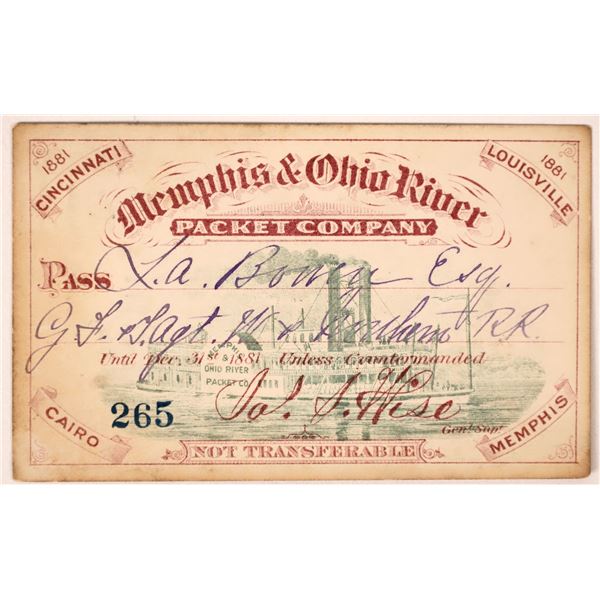 1881
CINCINNATI
1881
LOUISVILLE
Memphis & Ohio River
PACKET COMPANY
PASS L. A. Esq.
Agt. & R.R.
Until Dec. 31st 1881 Unless Countermanded
MEMPHIS & OHIO RIVER PACKET CO.
265
Wise
Genl. Supt.
CAIRO
MEMPHIS
NOT TRANSFERABLE